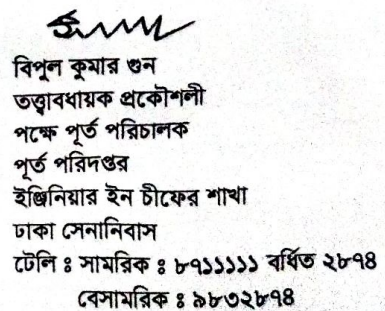 বিপুল কুমার গুন
তত্ত্বাবধায়ক প্রকৌশলী
পক্ষে পূর্ত পরিচালক
পূর্ত পরিদপ্তর
ইঞ্জিনিয়ার ইন চীফের শাখা
ঢাকা সেনানিবাস
টেলি ঃ সামরিক ঃ ৮৭১১১১১ বর্ধিত ২৮৭৪
বেসামরিক ঃ ৯৮৩২৮৭৪